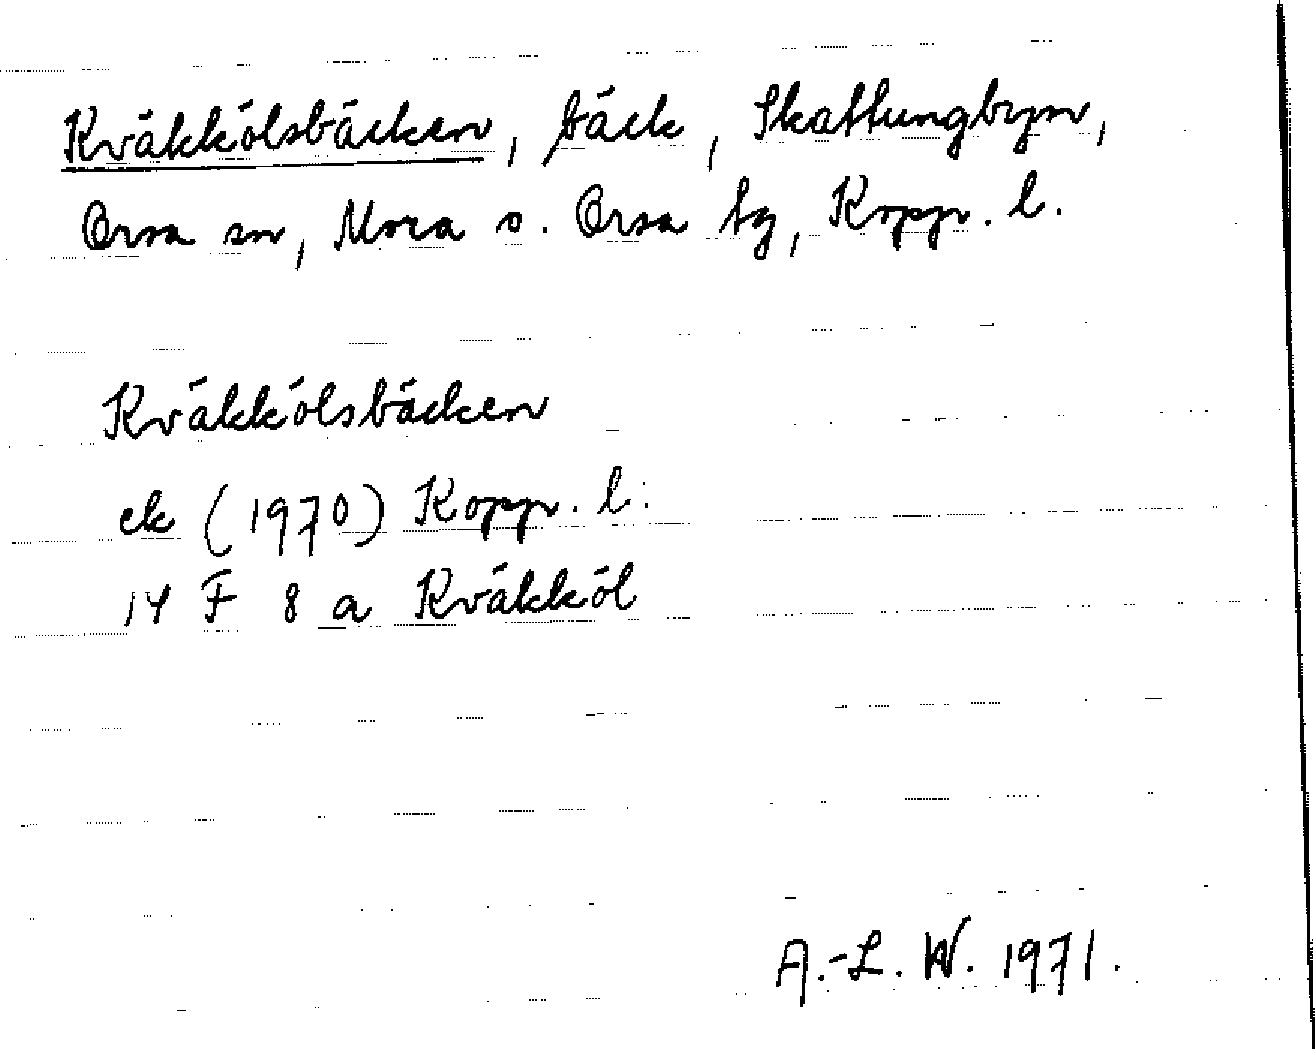 Kväkkölsbäcken, bäck, Skattungbyn,
Orsa sn, Mora o. Orsa tg, Kopp. l.
Kväkkölsbäcken
ek (1970) Kopp. l.
14 F 8 a Kväkköl
A.-L. W. 1971.